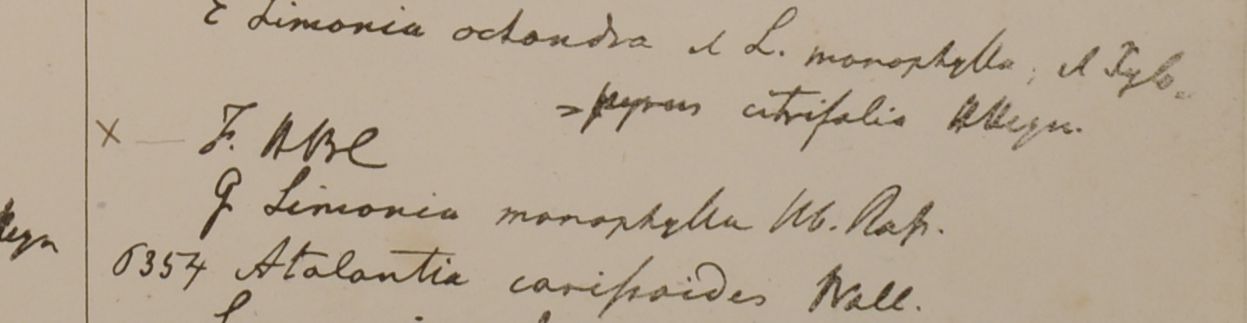 E Limonia octandra et L. monophylla, et Xylo-
carpus citrifolia HHeyn.
X — F. HBC
G Limonia monophylla Hb. Roxb.
Heyn
6354 Atalantia carissoides Wall.